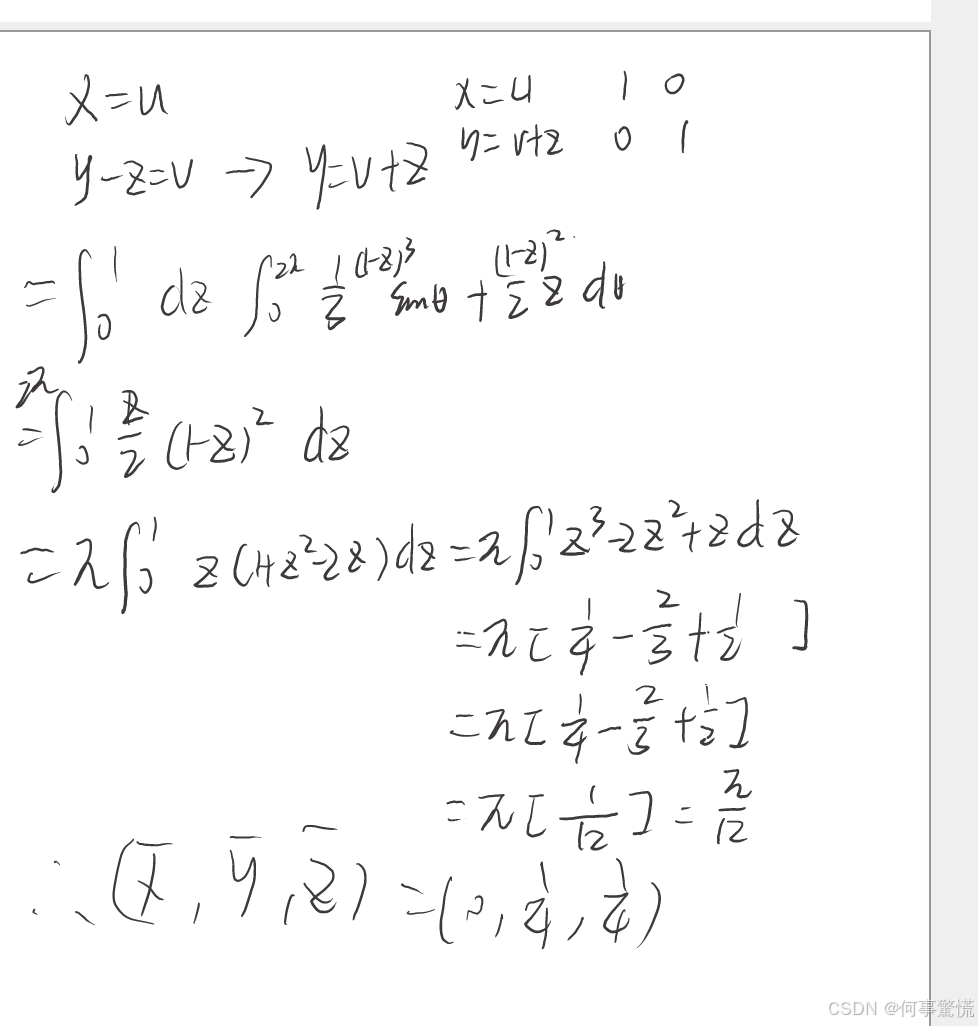 x=u
y-z=v → y=v+z
x=u 1 0
y=v+z 0 1
=∫₀¹ dz ∫₀^{2π} 1/3 (1-z)³ sinθ + (1-z)²/2 z dθ
=2π∫₀¹ z/2 (1-z)² dz
=π∫₀¹ z(1+z²-2z)dz=π∫₀¹ z³-2z²+z dz
=π[1/4 - 2/3 + 1/2 ]
=π[1/4 - 2/3 + 1/2]
=π[1/12] = π/12
∴ (x̄, ȳ, z̄) =(0, 1/4, 1/4)
CSDN @何事驚慌